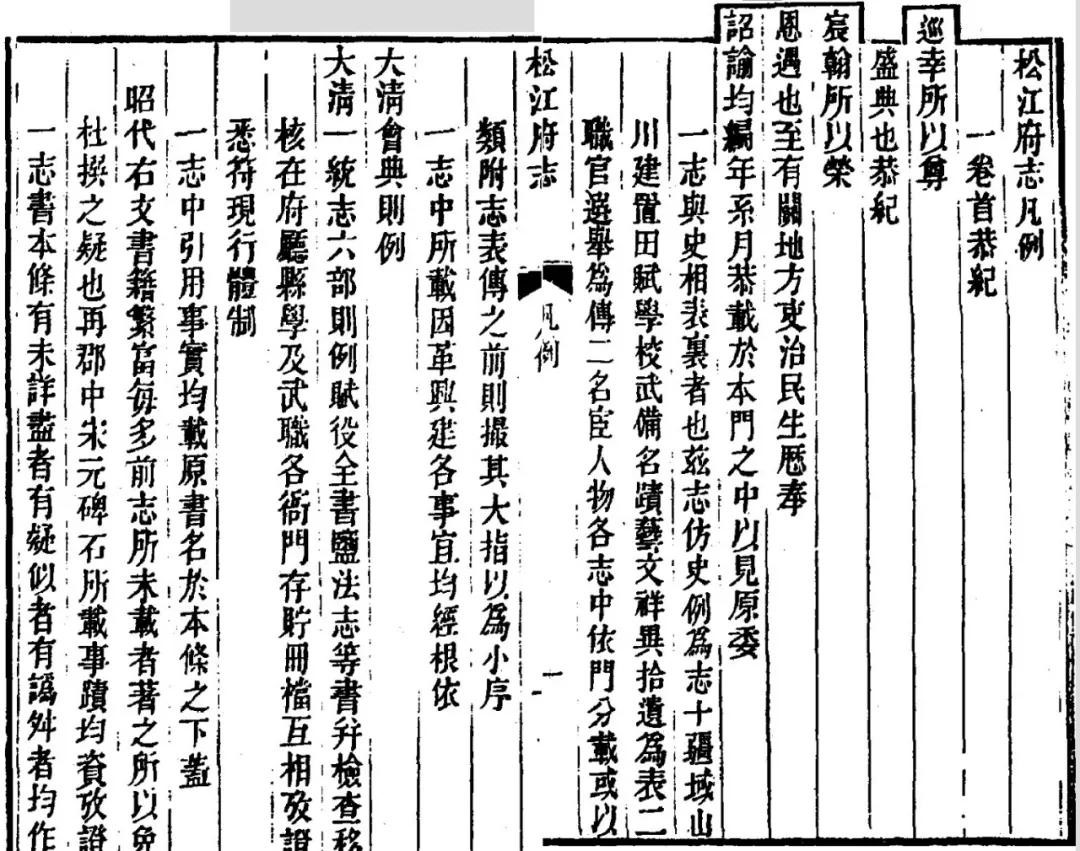 松江府志凡例
一卷首恭紀
巡幸所以尊
盛典也恭紀
宸翰所以榮
恩遇也至有關地方吏治民生歷奉
詔諭均編年系月恭載於本門之中以見原委
一志與史相表裏者也兹志仿史例爲志十疆域山
川建置田賦學校武備名蹟藝文祥異拾遺爲表二
職官選舉爲傳二名臣人物各志中依門分載或以
松江府志
凡例
一
類附志表傳之前則撮其大指以爲小序
一志中所載因革興建各事宜均經根依
大清會典則例
大清一統志六部則例賦役全書鹽法志等書幷檢查移
核在府廳縣學及武職各衙門存貯冊檔互相攷證
悉符現行體制
一志中引用事實均載原書名於本條之下蓋
昭代右文書籍繁富每多前志所未載者著之所以免
杜撰之疑也再郡中宋元碑石所載事蹟均資攷證
一志書本條有未詳盡者有疑似者有譌舛者均作